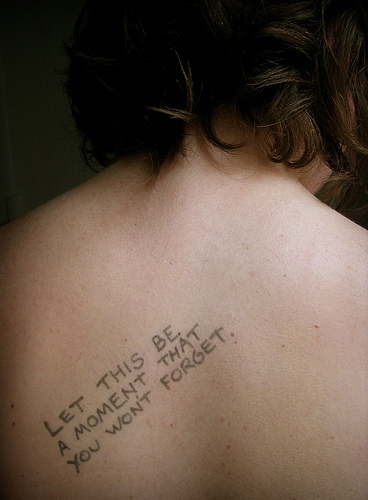 LET THIS BE
A MOMENT THAT
YOU WON'T FORGET.